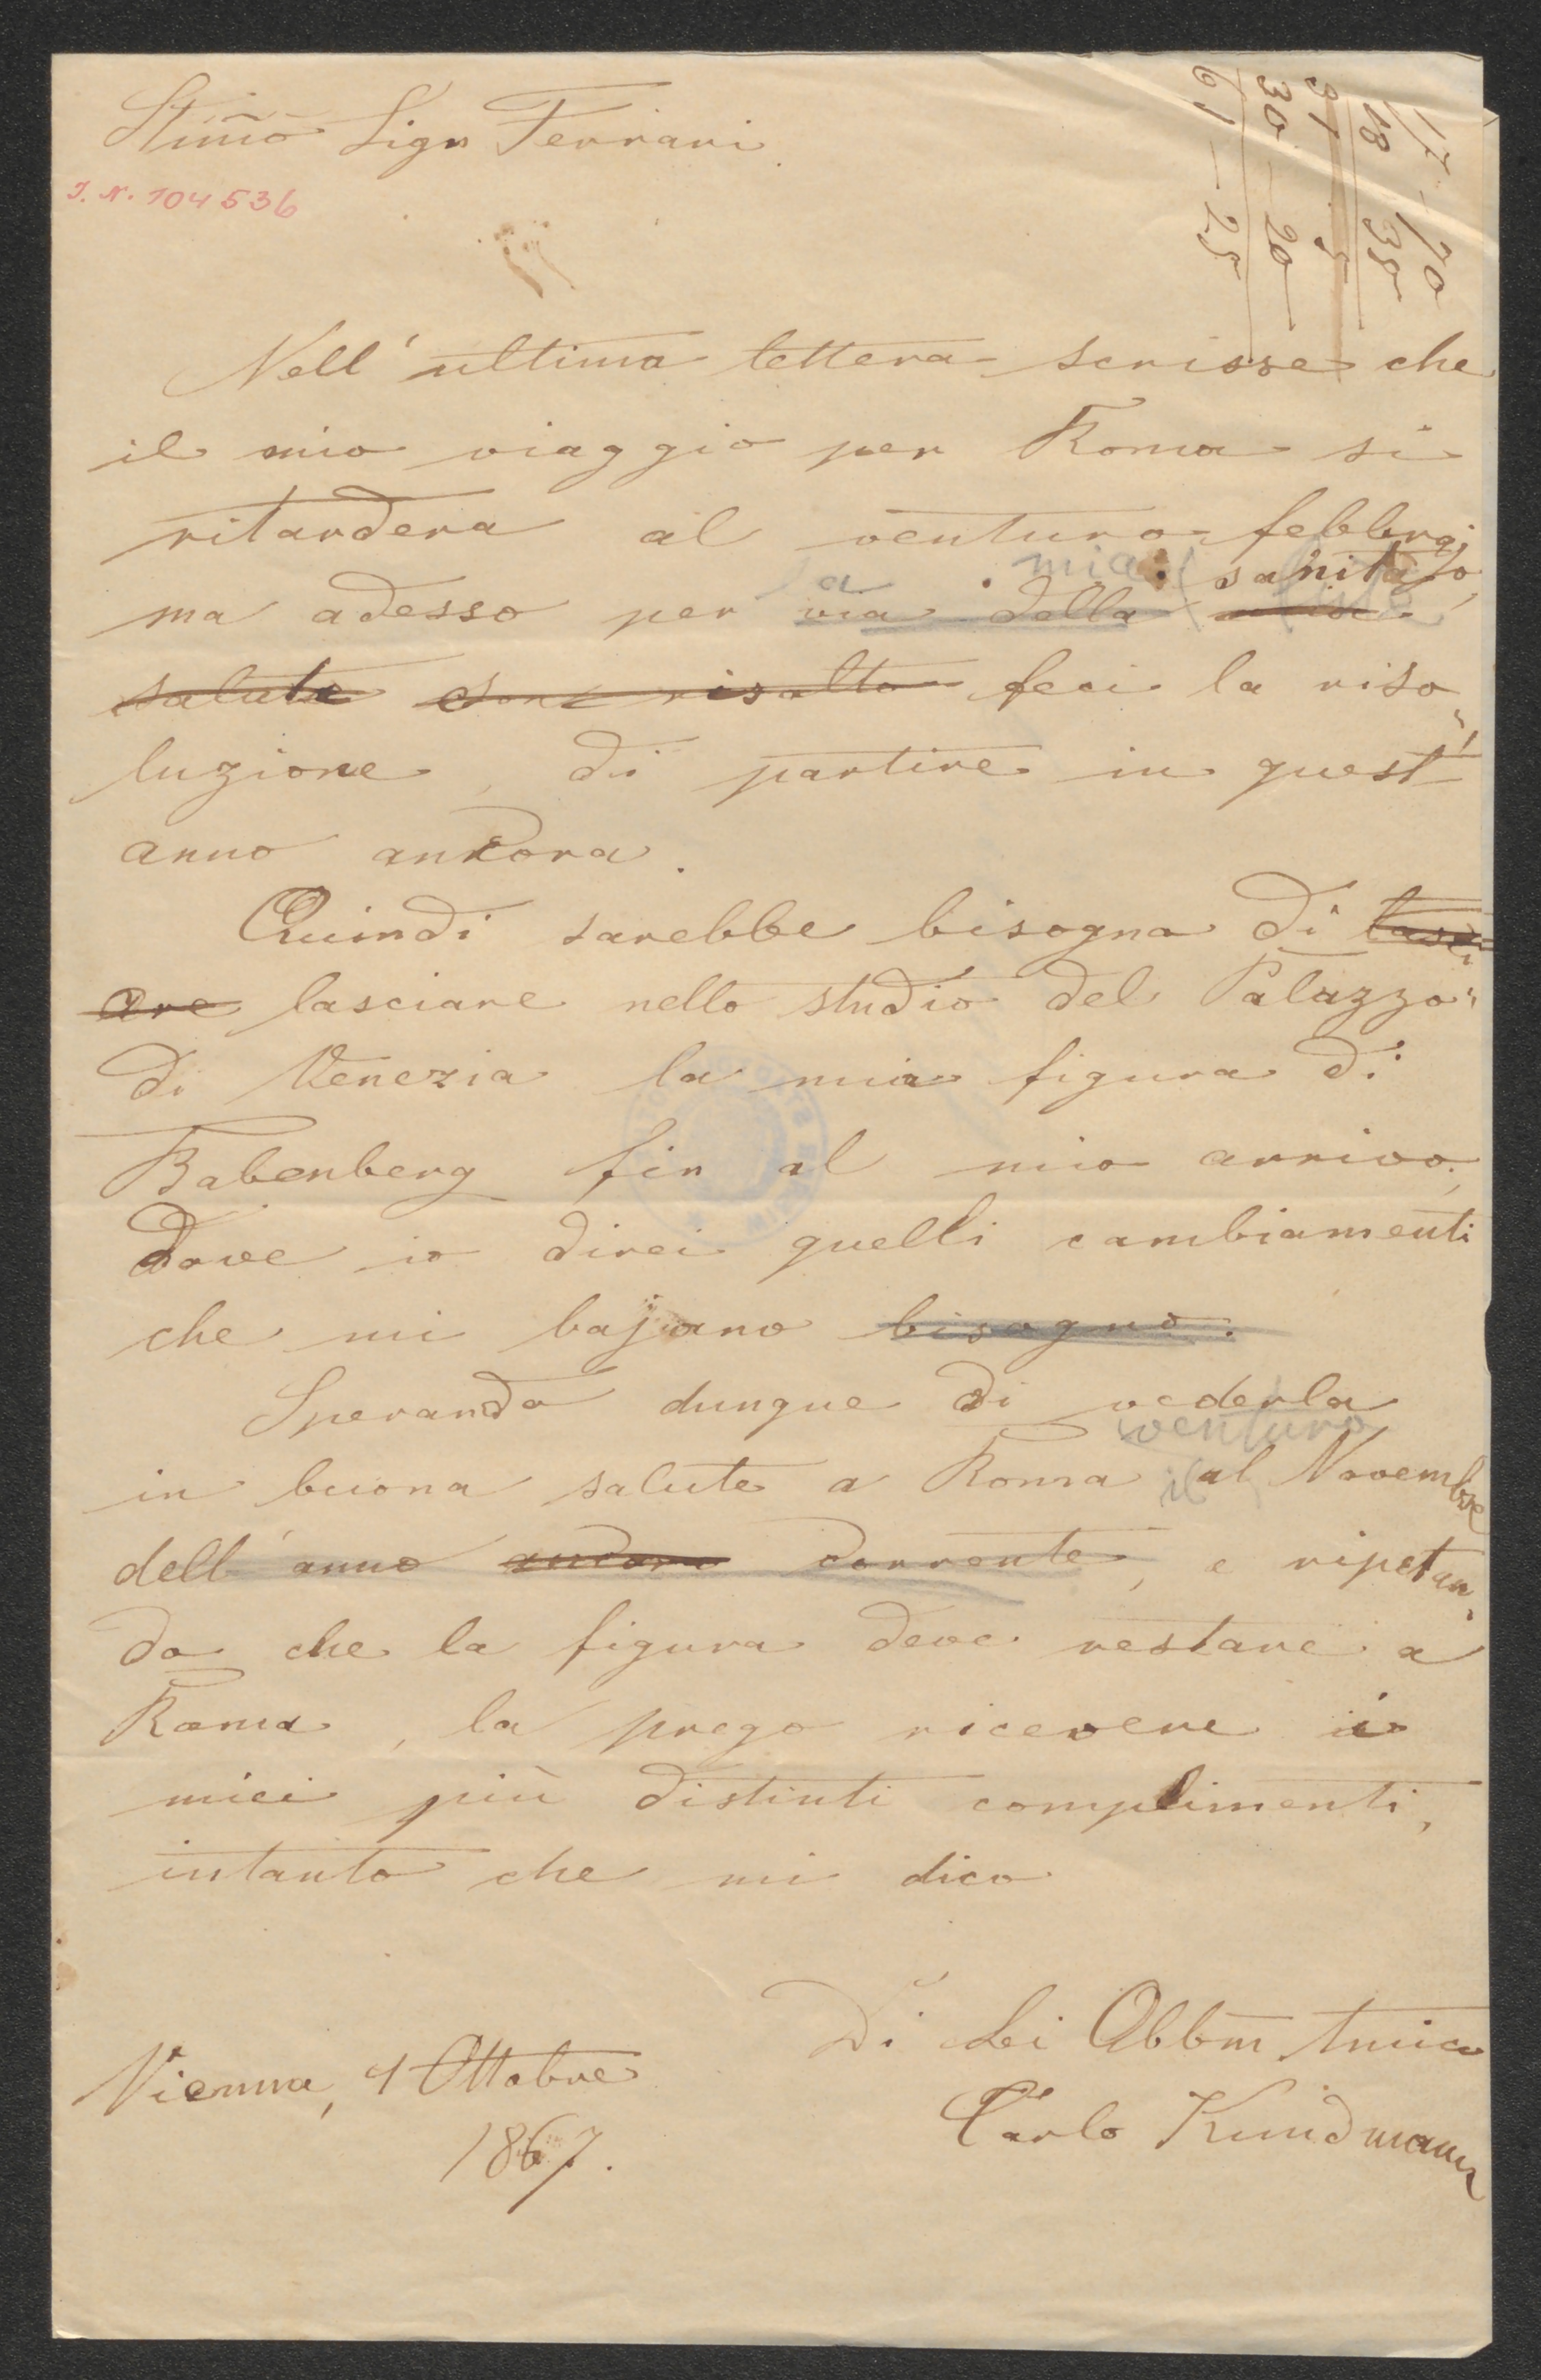 Stimo Sign Ferrari
I. N. 104536
17 - 70
18 35
31 5
30 - 20
61 - 25
Nell' ultima lettera scrisse che
il mio viaggio per Roma si
ritardera al venturo febbrajo,
a mia sanità
ma adesso per via della mia
salute son risolto feci la riso-
luzione, di partire in quest'
anno ancora.
Quindi sarebbe bisogna di lasci
are lasciare nello studio del Palazzo
di Venezia la mia figura di
Babenberg fin al mio arrivo,
Dove io direi quelli cambiamenti
che mi bajono bisogno.
Sperando dunque di vederla
venturo
in buona salute a Roma il al Novembre
dell' anno ancora corrente, e ripetan-
do che la figura deve restare a
Roma, la prego ricevere i
miei più distinti complimenti,
intanto che mi dico
Di Lei Obbm Amico
Vienna, 4 Ottobre
Carlo Kundmann
1867.